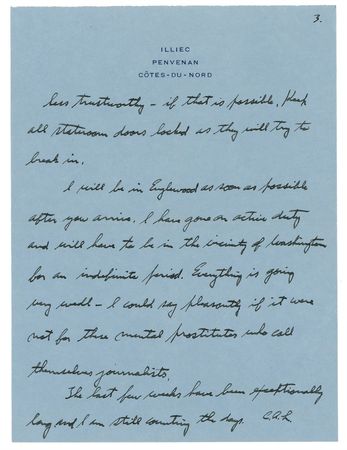 3.
ILLIEC
PENVENAN
CÔTES-DU-NORD
less trustworthy – if that is possible. Keep
all stateroom doors locked as they will try to
break in.
I will be in Englewood as soon as possible
after you arrive. I have gone on active duty
and will have to be in the vicinity of Washington
for an indefinite period. Everything is going
very well – I could say pleasantly if it were
not for those mental prostitutes who call
themselves journalists.
The last few weeks have been exceptionally
long and I am still counting the days. C.A.L.